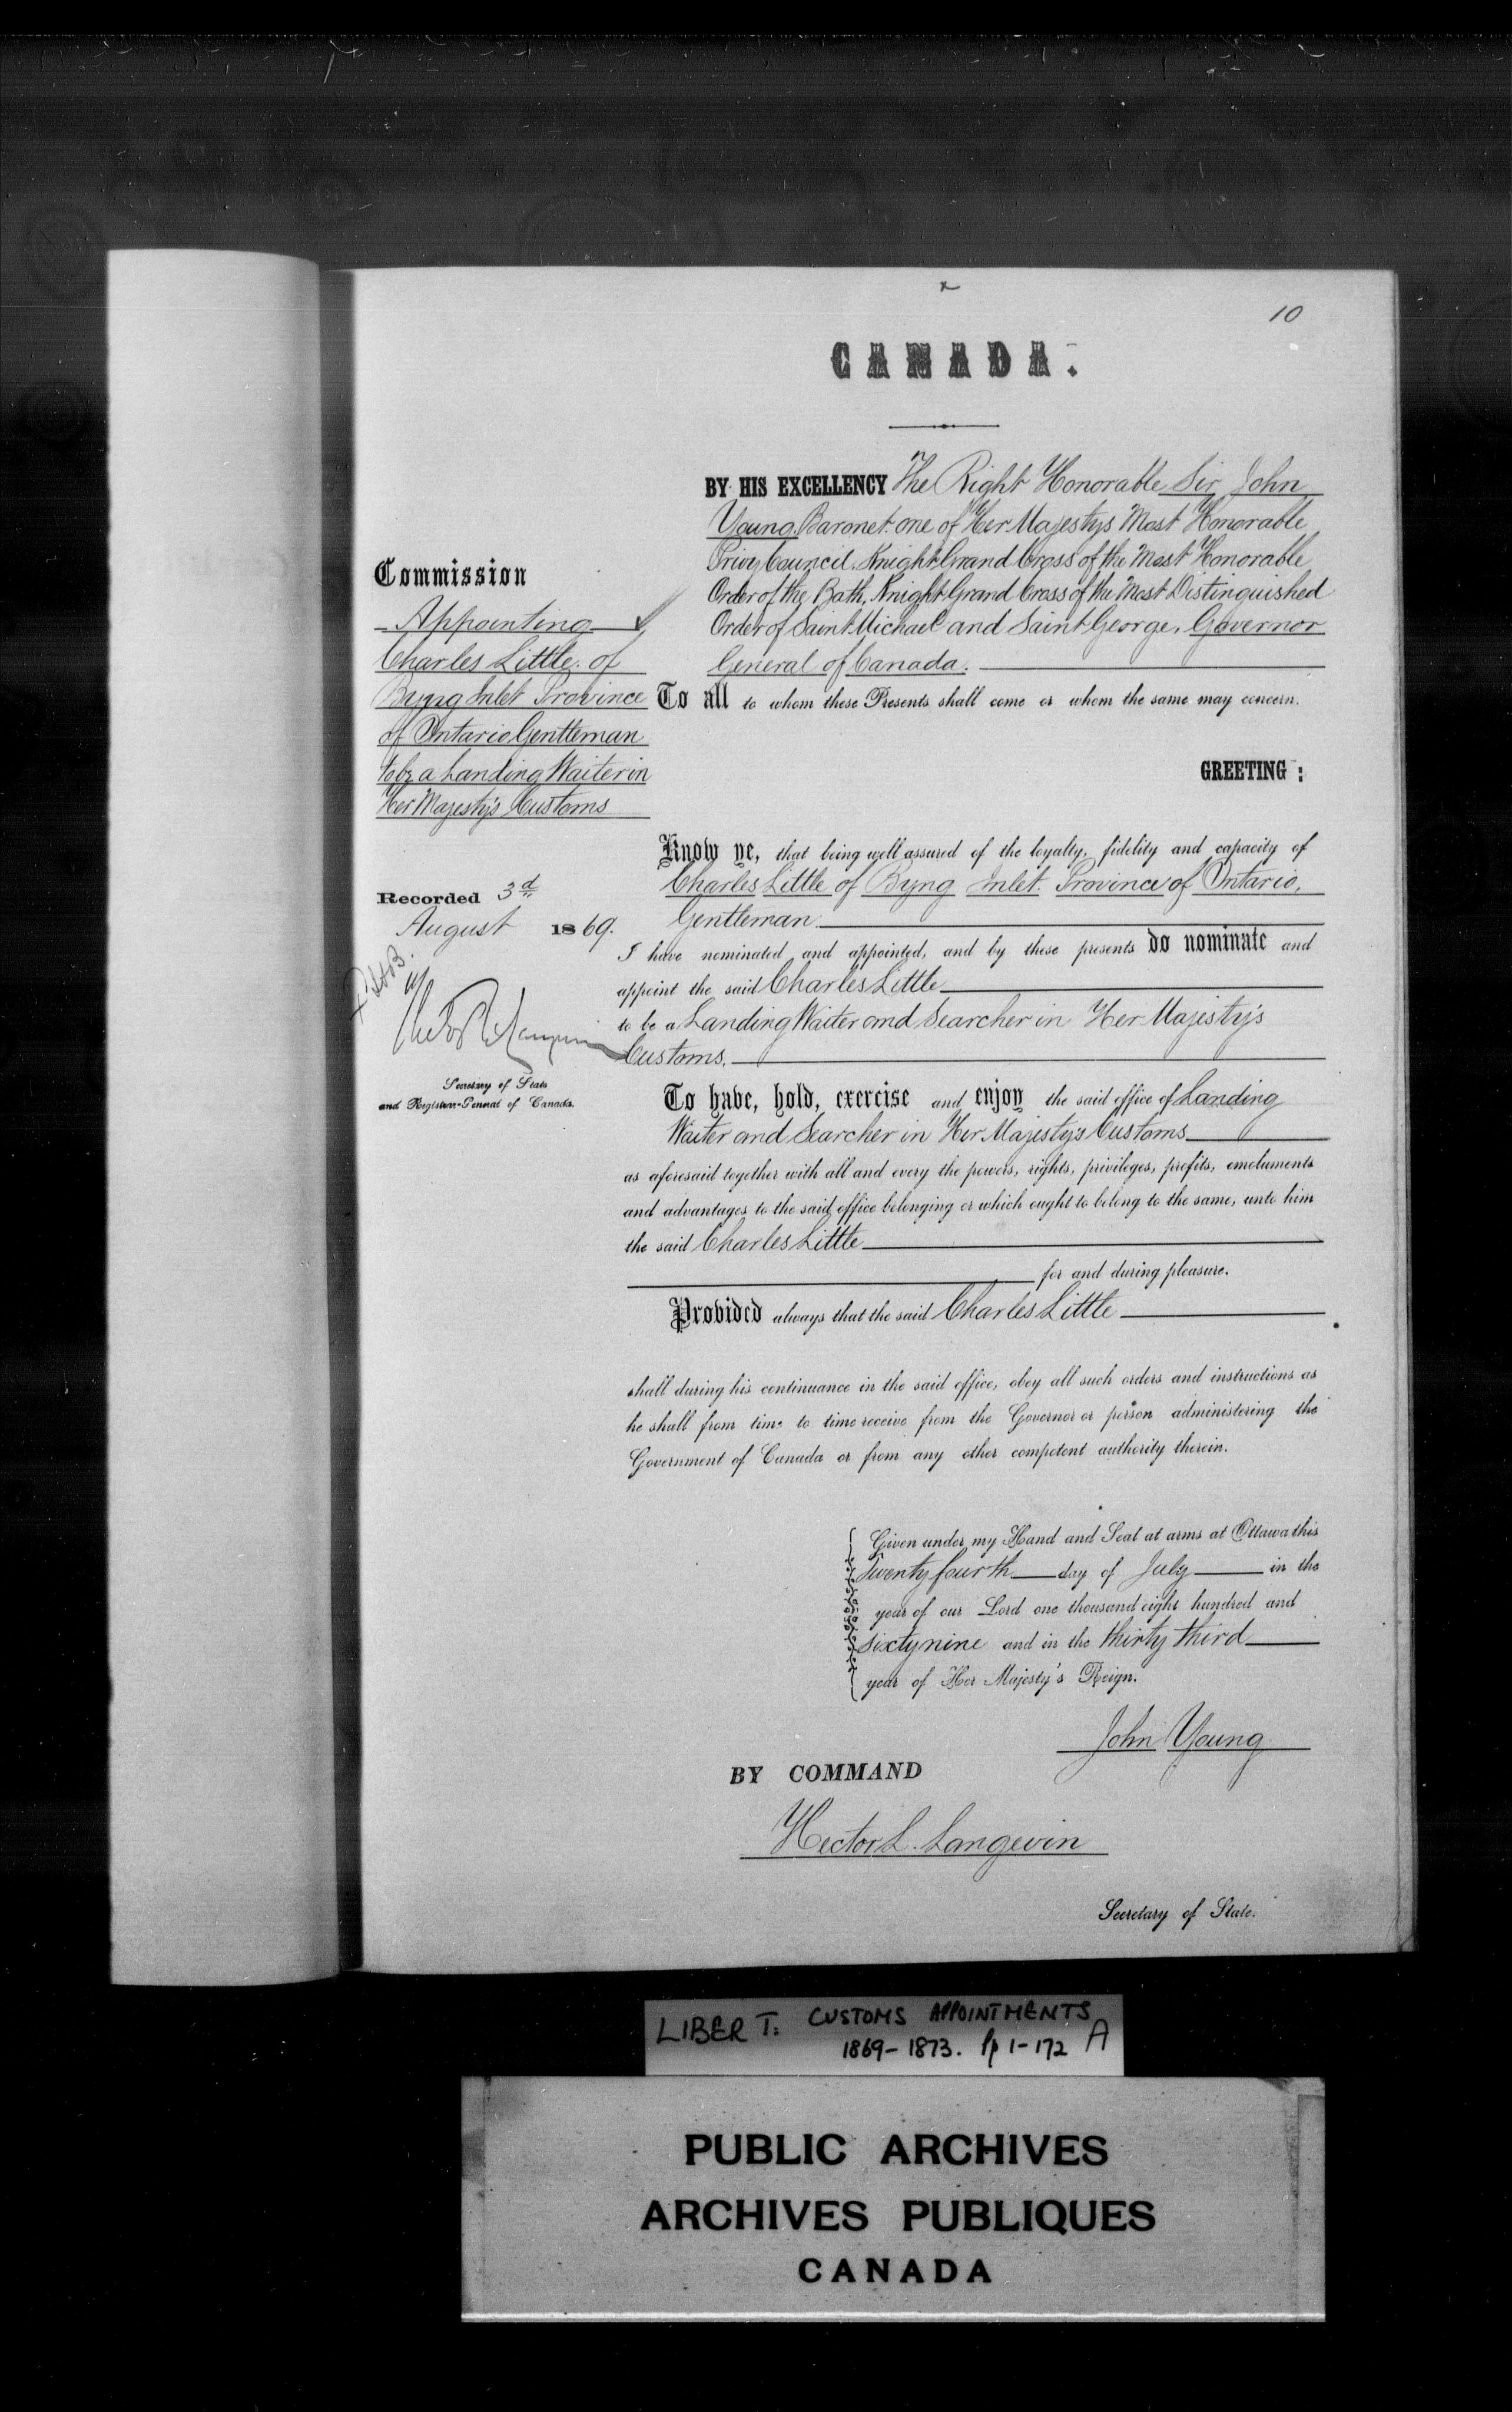 10
CANADA.
BY HIS EXCELLENCY The Right Honorable Sir John
Young. Baronet. one of Her Majestys Most Honorable
Privy Council. Knight Grand Cross of the Most Honorable
Order of the Bath, Knight Grand Cross of the Most Distinguished
Order of Saint Michael and Saint George, Governor
General of Canada.
Commission
Appointing
Charles Little. of
Byng Inlet Province
of Ontario Gentleman
to be a Landing Waiter in
Her Majesty's Customs
Recorded 3d
August 1869.
Secretary of State
and Registrar-General of Canada.
To all to whom these Presents shall come or whom the same may concern.
GREETING:
Know ye, that being well assured of the loyalty, fidelity and capacity of
Charles Little of Byng Inlet. Province of Ontario,
Gentleman.
I have nominated and appointed, and by these presents do nominate and
appoint the said Charles Little
to be a Landing Waiter and Searcher in Her Majesty's
Customs.
To have, hold, exercise and enjoy the said office of Landing
Waiter and Searcher in Her Majesty's Customs
as aforesaid together with all and every the powers, rights, privileges, profits, emoluments
and advantages to the said office belonging or which ought to belong to the same, unto him
the said Charles Little
for and during pleasure.
Provided always that the said Charles Little
shall during his continuance in the said office, obey all such orders and instructions as
he shall from time to time receive from the Governor or person administering the
Government of Canada or from any other competent authority therein.
Given under my Hand and Seal at arms at Ottawa this
Twenty fourth day of July in the
year of our Lord one thousand eight hundred and
sixty nine and in the thirty third
year of Her Majesty's Reign.
John Young
BY COMMAND
Hector L. Langevin
Secretary of State.
LIBER T. CUSTOMS APPOINTMENTS
1869-1873. Pp 1-172 A
PUBLIC ARCHIVES
ARCHIVES PUBLIQUES
CANADA